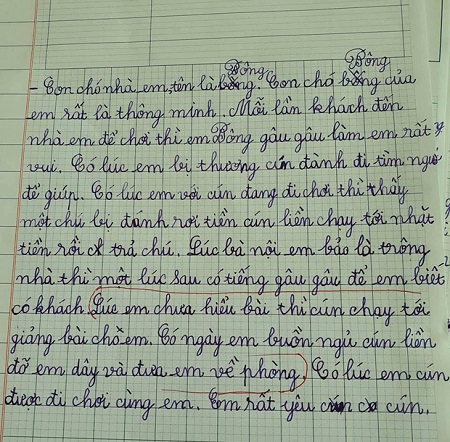 Bông Bông
- Con chó nhà em, tên là bông. Con chó bông của
em rất là thông minh. Mỗi lần khách đến
nhà em để chơi thì em Bông gâu gâu làm em rất
vui. Có lúc em bị thương cún đành đi tìm ngườ
để giúp. Có lúc em với cún đang đi chơi thì thấy
một chú bị đánh rơi tiền cún liền chạy tới nhặt
tiền rồi trả chú. Lúc bà nội em bảo là trông
nhà thì một lúc sau có tiếng gâu gâu để em biết
có khách. Lúc em chưa hiểu bài thì cún chạy tới
giảng bài chõ em. Có ngày em buồn ngủ cún liền
đỡ em dây và đưa em về phòng. Có lúc em cún
được đi chơi cùng em. Em rất yêu cún.